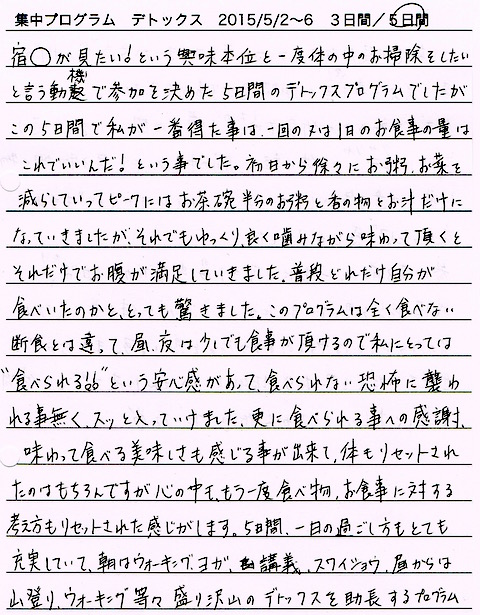 集中プログラム デトックス 2015/5/2〜6 3日間/5日間
宿◯が見たい!という興味本位と一度体の中のお掃除をしたい
と言う動機で参加を決めた5日間のデトックスプログラムでしたが
この5日間で私が一番得た事は、一回の又は1日のお食事の量は
これでいいんだ!という事でした。初日から徐々にお粥、お菜を
減らしていってピークにはお茶碗半分のお粥と香の物とお汁だけに
なっていきましたが、それでもゆっくり、良く噛みながら味わって頂くと
それだけでお腹が満足していきました。普段どれだけ自分が
食べいたのかと、とっても驚きました。このプログラムは全く食べない
断食とは違って、昼、夜は少しでも食事が頂けるので私にとっては
"食べられる!!"という安心感があって、食べられない恐怖に襲わ
れる事無く、スッと入っていけました、更に食べられる事への感謝、
味わって食べる美味しさも感じる事が出来て、体もリセットされ
たのはもちろんですが心の中も、もう一度食べ物、お食事に対する
考え方もリセットされた感じがします。5日間、一日の過ごし方もとても
充実していて、朝はウォーキング、ヨガ、講義、スワイショウ、昼からは
山登り、ウォーキング等々盛り沢山のデトックスを助長するプログラム